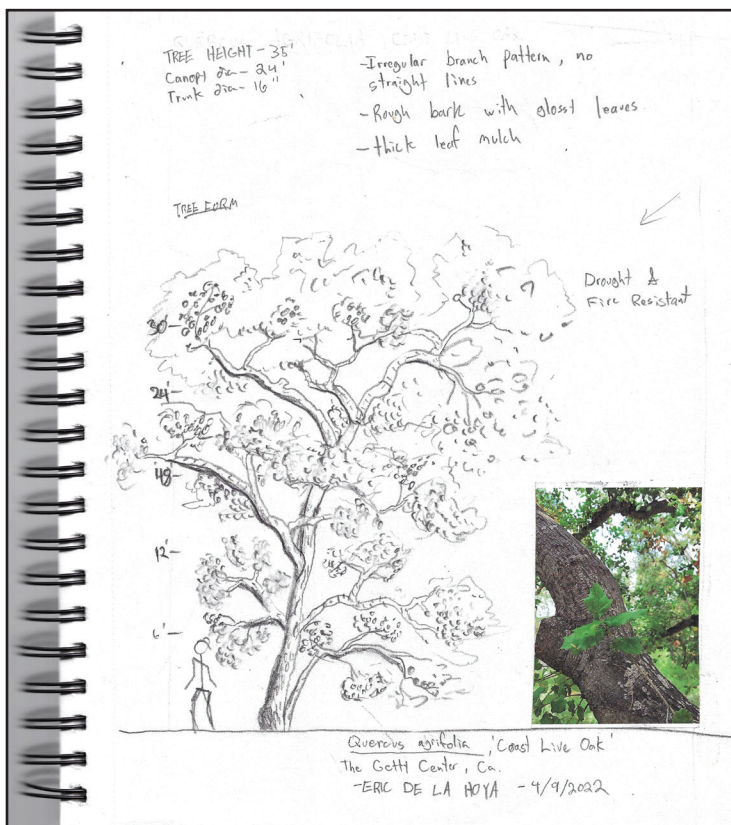 TREE HEIGHT - 35'
Canopy dia - 24'
Trunk dia - 16"
- Irregular branch pattern, no
straight lines
- Rough bark with glossy leaves
- thick leaf mulch
TREE FORM
Drought &
Fire Resistant
30'
24'
18'
12'
6'
Quercus agrifolia, 'Coast Live Oak'
The Getty Center, Ca.
- ERIC DE LA HOYA - 4/9/2022